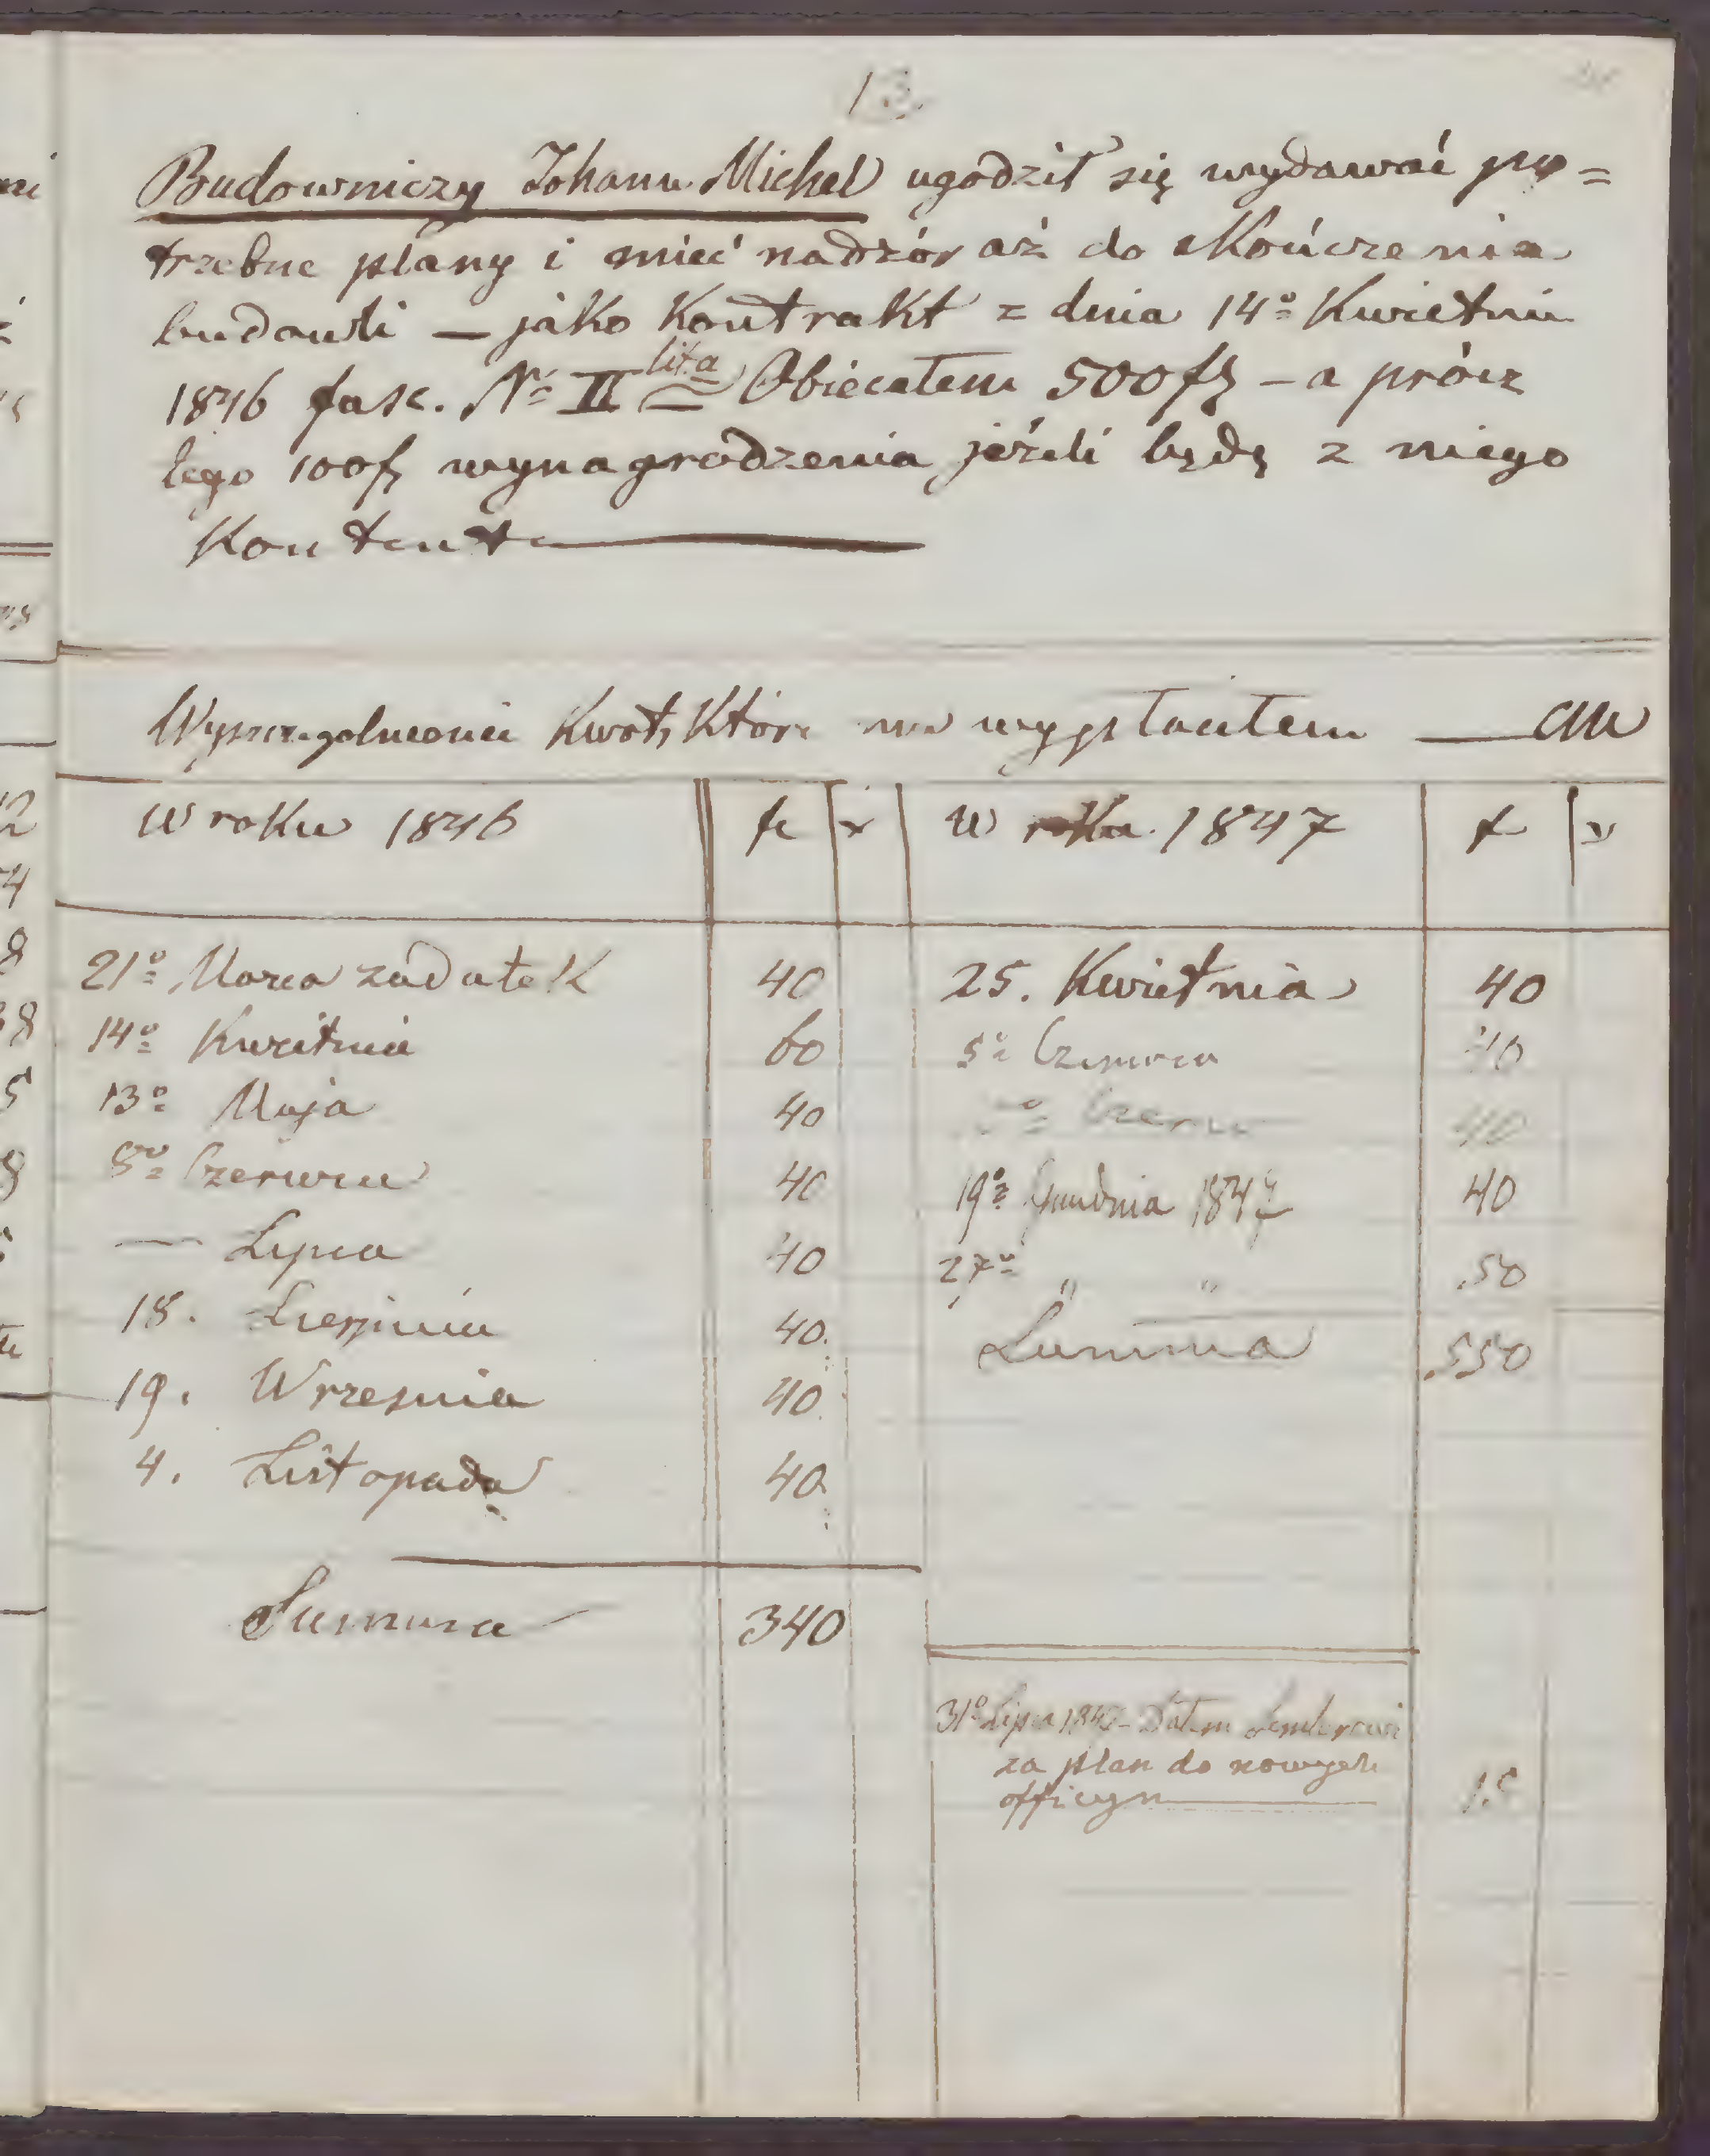 13.
Budowniczy Johann Michel ugodził się wydawać po=
trzebne plany i mieć nadzór aż do skończenia
budowli — jako Kontrakt z dnia 14º Kwietnia
1846 fasc. Nº II lit. a Obiecałem 500 f – a prócz
tego 100 f wynagrodzenia jeżeli będę z niego
Kontent
Wyszczegolnienie Kwot, Które mu wypłaciłem — CM
W roku 1846 fr x W roku 1847 f x
21º Marca zadatek 40 25. Kwietnia 40
14º Kwietnia 60 5º Czerwca 40
13º Maja 40 Czerw 40
8º Czerwca 40 19º Grudnia 1847 40
— Lipca 40 27º " " 50
18. Sierpnia 40. Summa 550
19. Wrzesnia 40.
4. Listopada 40.
Summa 340
31º Lipca 1847 – Dałem
za plan do nowych
officyn 15